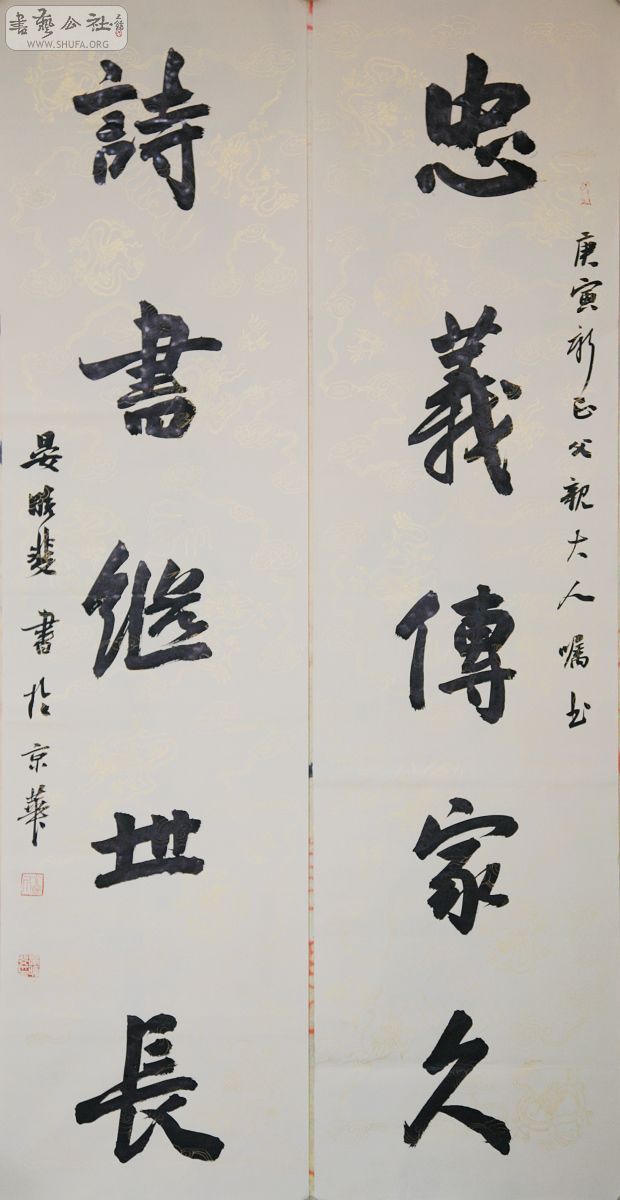 書藝公社
WWW.SHUFA.ORG
庚寅新正父親大人囑書
忠義傳家久
詩書継世長
書於京華